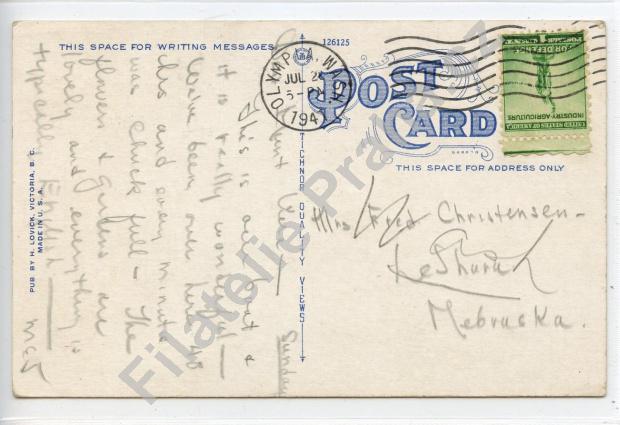 THIS SPACE FOR WRITING MESSAGES
126125
POST
CARD
THIS SPACE FOR ADDRESS ONLY
OLYMPIA, WASH.
JUL 2
5-PM
194
UNITED STATES OF AMERICA
INDUSTRY·AGRICULTURE
FOR DEFENSE
Mrs Fred Christensen-
Nebraska.
Sunday
Aunt
This is
It is really wonderful —
We've been over here 48
and every minute
was chuck full - The
flowers & gardens are
lovely and everything is
typically English —
TICHNOR QUALITY VIEWS
PUB. BY H. LOVICK, VICTORIA, B. C.
MADE IN U. S. A.
Filatelie Pra